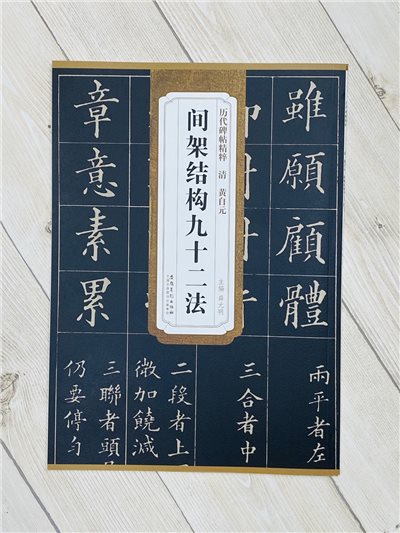 历代碑帖精粹 清 黄自元
间架结构九十二法
主编 薛元明
安徽美术出版社
雖願顧體
章意素累
兩平者左
三合者中
二段者上
微加饒減
三聯者頭
仍要停勻